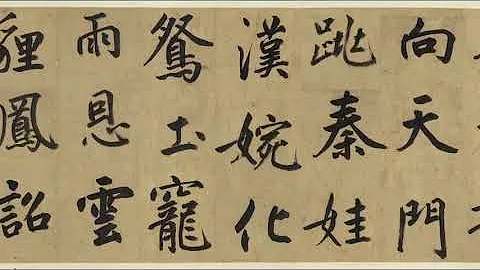 向天門
秦娃
漢婉化
鴛土寵
雨恩雲
貍鳳詔